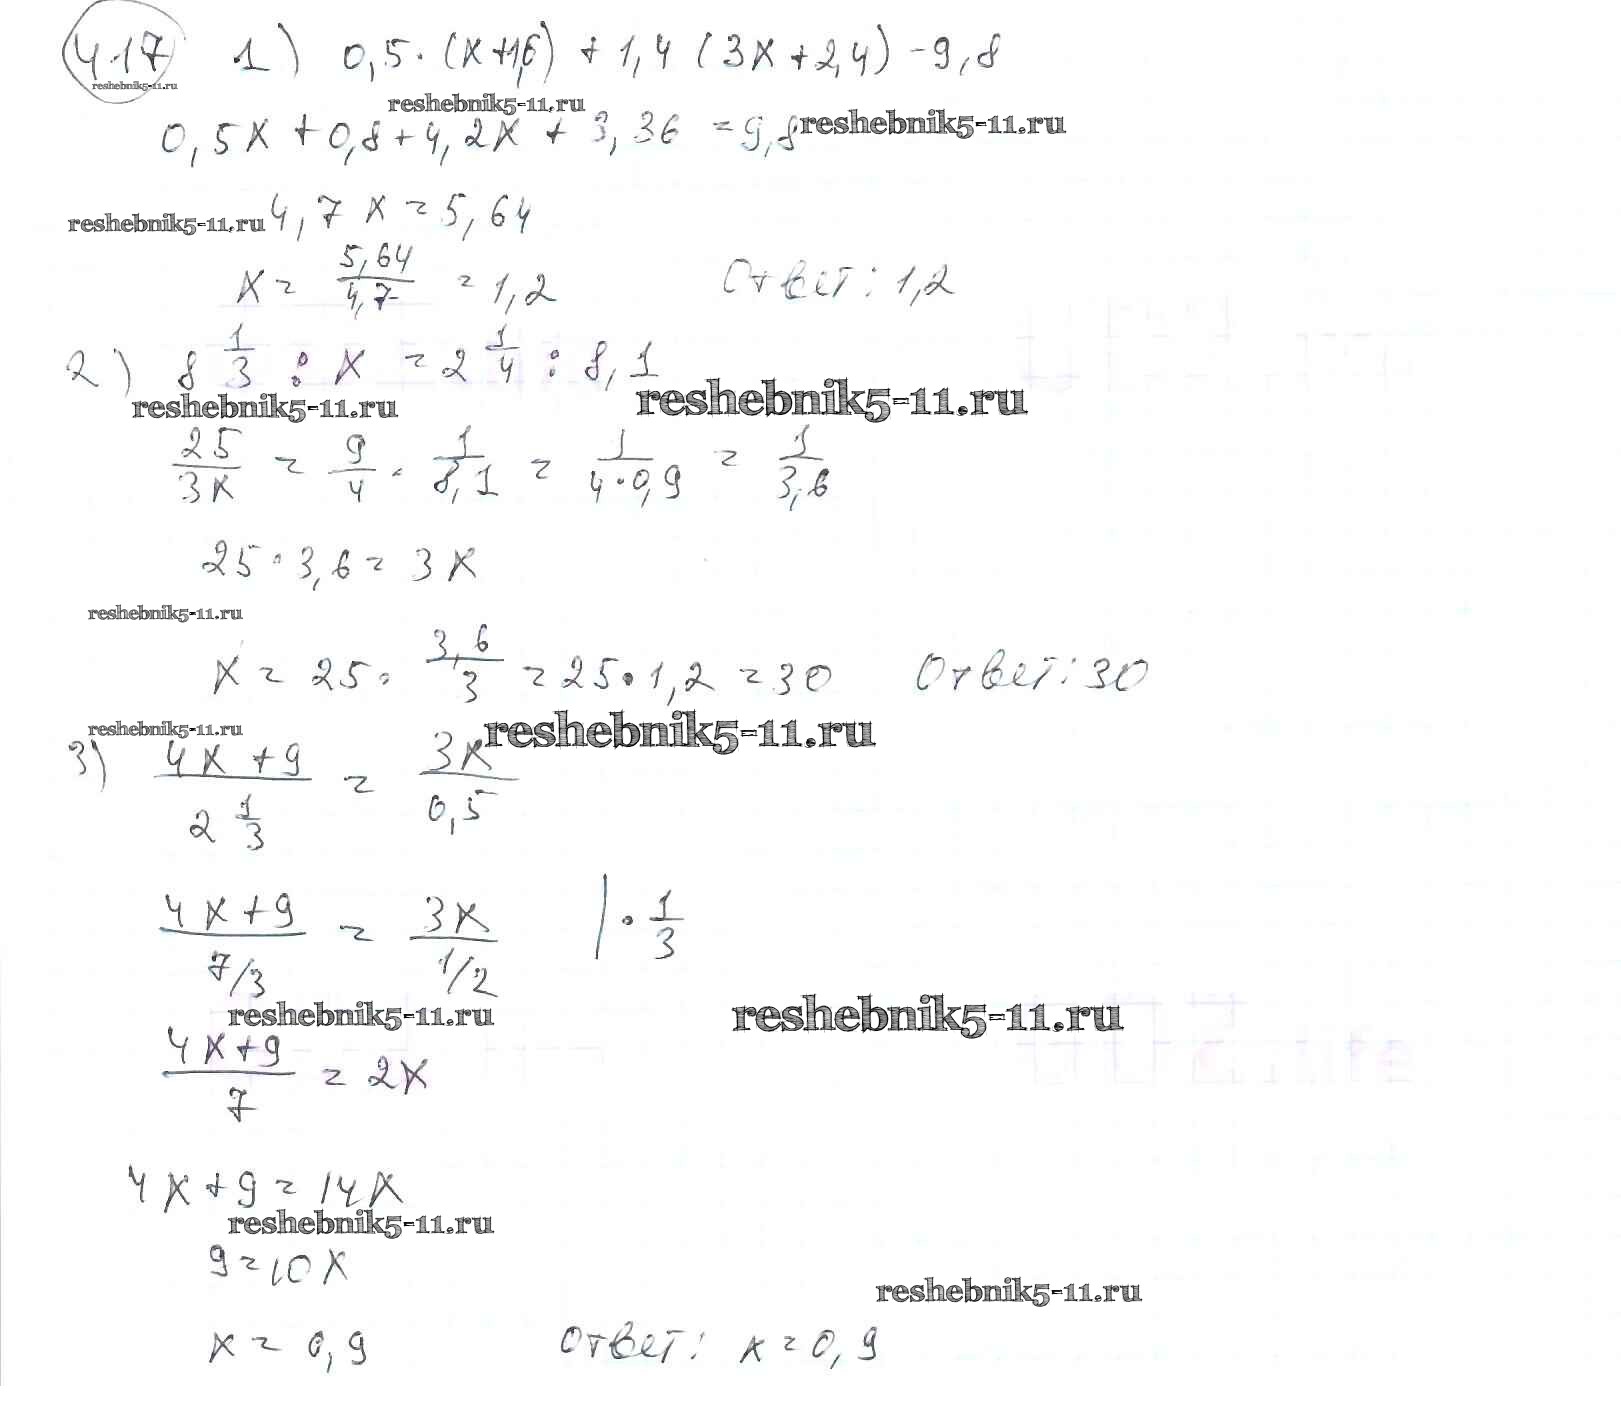 417 1) 0,5·(x+1,6) + 1,4(3x+2,4) -9,8
reshebnik5-11.ru
reshebnik5-11.ru
0,5x+0,8+4,2x+3,36 =9,8
reshebnik5-11.ru
reshebnik5-11.ru
4,7x=5,64
x = 5,64/4,7 = 1,2 Ответ: 1,2
2) 8 1/3 : x = 2 1/4 : 8,1
reshebnik5-11.ru
reshebnik5-11.ru
25/3x = 9/4 · 1/8,1 = 1/4·0,9 = 1/3,6
25·3,6= 3x
reshebnik5-11.ru
x = 25· 3,6/3 = 25·1,2 = 30 Ответ: 30
reshebnik5-11.ru
reshebnik5-11.ru
3) 4x+9/2 1/3 = 3x/0,5
4x+9/7/3 = 3x/1/2 |· 1/3
reshebnik5-11.ru
reshebnik5-11.ru
4x+9/7 = 2x
4x+9=14x
reshebnik5-11.ru
9=10x
reshebnik5-11.ru
x = 0,9 Ответ: x=0,9